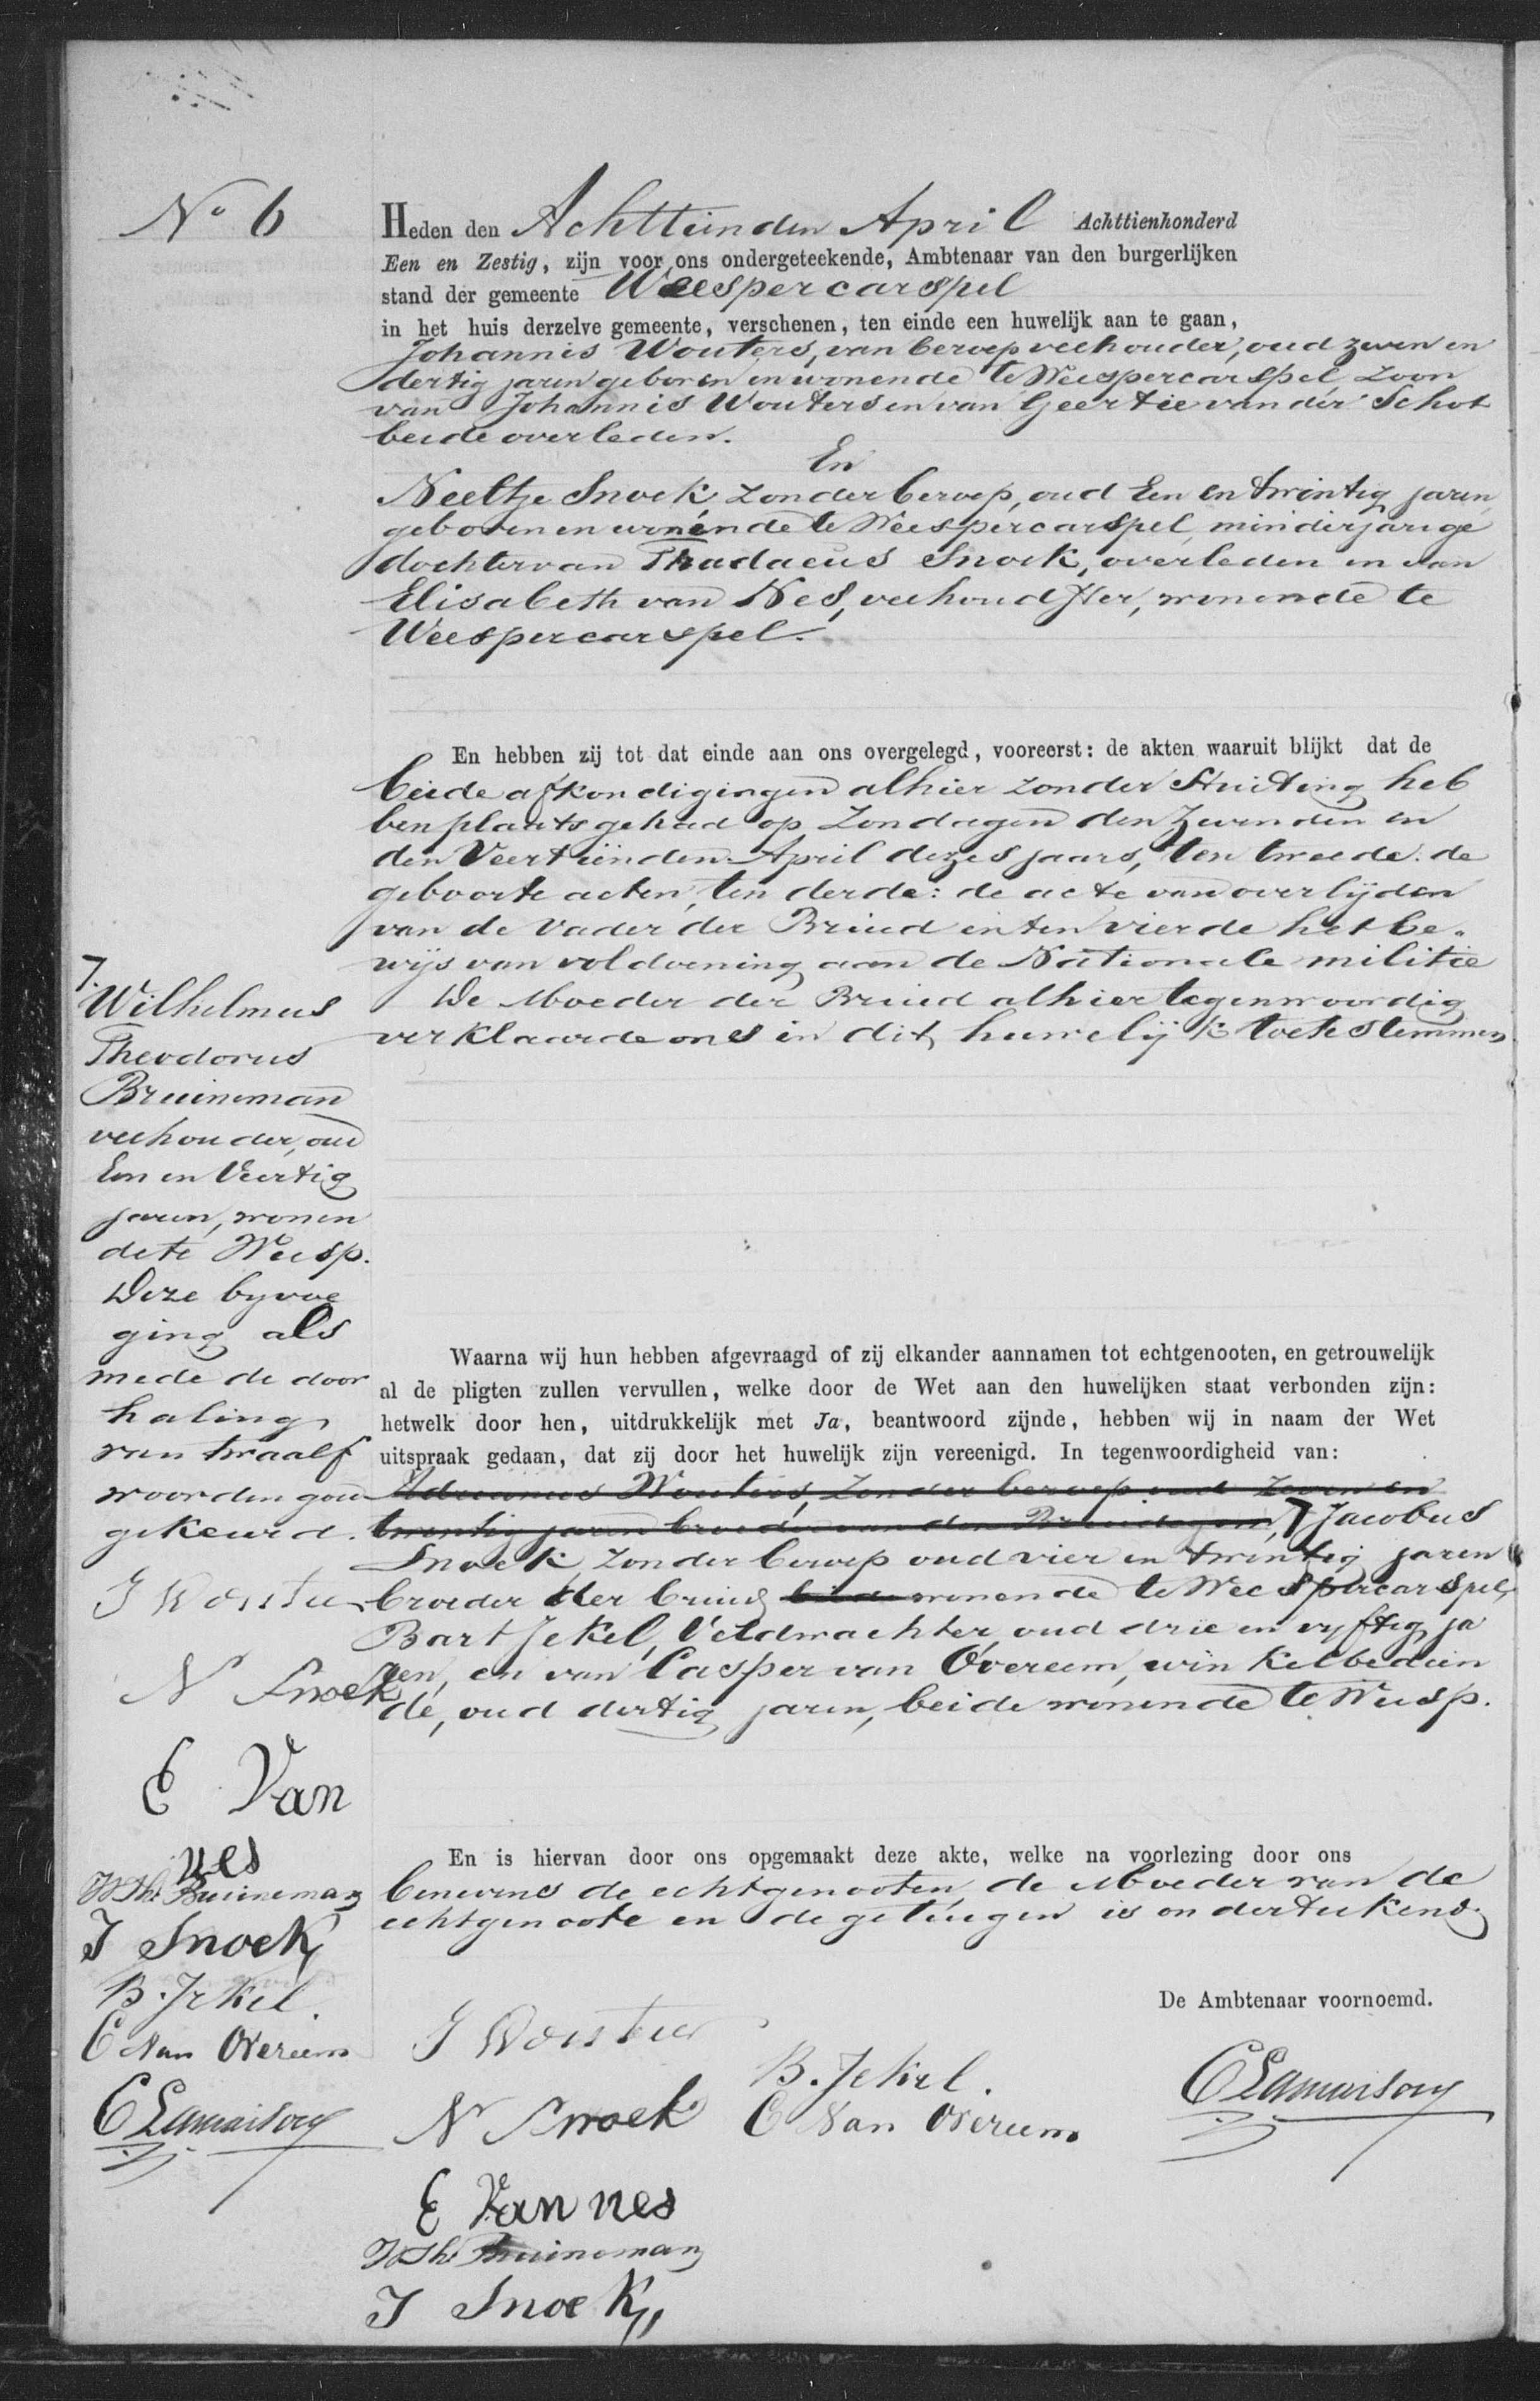 No 6
Heden den Achttienden April Achttienhonderd
Een en Zestig, zijn voor ons ondergeteekende, Ambtenaar van den burgerlijken
stand der gemeente Weespercarspel
in het huis derzelve gemeente, verschenen, ten einde een huwelijk aan te gaan,
Johannis Wouters, van beroep veehouder, oud zeven en
dertig jaren geboren en wonende te Weespercarspel, zoon
van Johannis Wouters en van Geertie van der Schot
beide overleden.
En
Neeltje Snoek, zonder beroep, oud Een en twintig jaren,
geboren en wonende te Weespercarspel, minderjarige
dochter van Thadaeus Snoek, overleden en van
Elisabeth van Nes, veehoudster, wonende te
Weespercarspel.
En hebben zij tot dat einde aan ons overgelegd, vooreerst: de akten waaruit blijkt dat de
beide afkondigingen alhier zonder Stuiting heb
ben plaats gehad op Zondagen den Zevenden en
den Veertienden April dezes jaars, ten tweede: de
geboorte acten, ten derde: de acte van overlijden
van de Vader der Bruid en ten vierde het be-
wijs van voldoening aan de Nationale militie
De Moeder der Bruid alhier tegenwoordig
verklaarde ons in dit huwelijk toetestemmen
Waarna wij hun hebben afgevraagd of zij elkander aannamen tot echtgenooten, en getrouwelijk
al de pligten zullen vervullen, welke door de Wet aan den huwelijken staat verbonden zijn:
hetwelk door hen, uitdrukkelijk met Ja, beantwoord zijnde, hebben wij in naam der Wet
uitspraak gedaan, dat zij door het huwelijk zijn vereenigd. In tegenwoordigheid van:
Adrianus Wouters, zonder beroep oud zeven en
twintig jaren broeder van den Bruidegom, 7 Jacobus
Snoek, zonder beroep oud vier en twintig jaren
broeder der bruid beide wonende te Weespercarspel,
Bart Jekel, Veldwachter, oud drie en vyftig ja
ren, en van Casper van Overeem, winkelbedien
de, oud dertig jaren, beide wonende te Weesp.
En is hiervan door ons opgemaakt deze akte, welke na voorlezing door ons
benevens de echtgenooten, de Moeder van de
echtgenoote en de getuigen is onderteekend.
De Ambtenaar voornoemd.
J Wouters
N Snoek
E Van nes
W Th Bruineman
J Snoek
B. Jekel.
C Van Overeem
C Lamaison
7. Wilhelmus
Theodorus
Bruineman
veehouder, oud
Een en Veertig
jaren, wonen
de te Weesp.
Deze byvoe
ging als
mede de door
haling
van twaalf
woorden goed
gekeurd.
J Wouters
N Snoek
E Van
nes
W Th Bruineman
J Snoek
B. Jekel.
C Van Overeem
C Lamaison